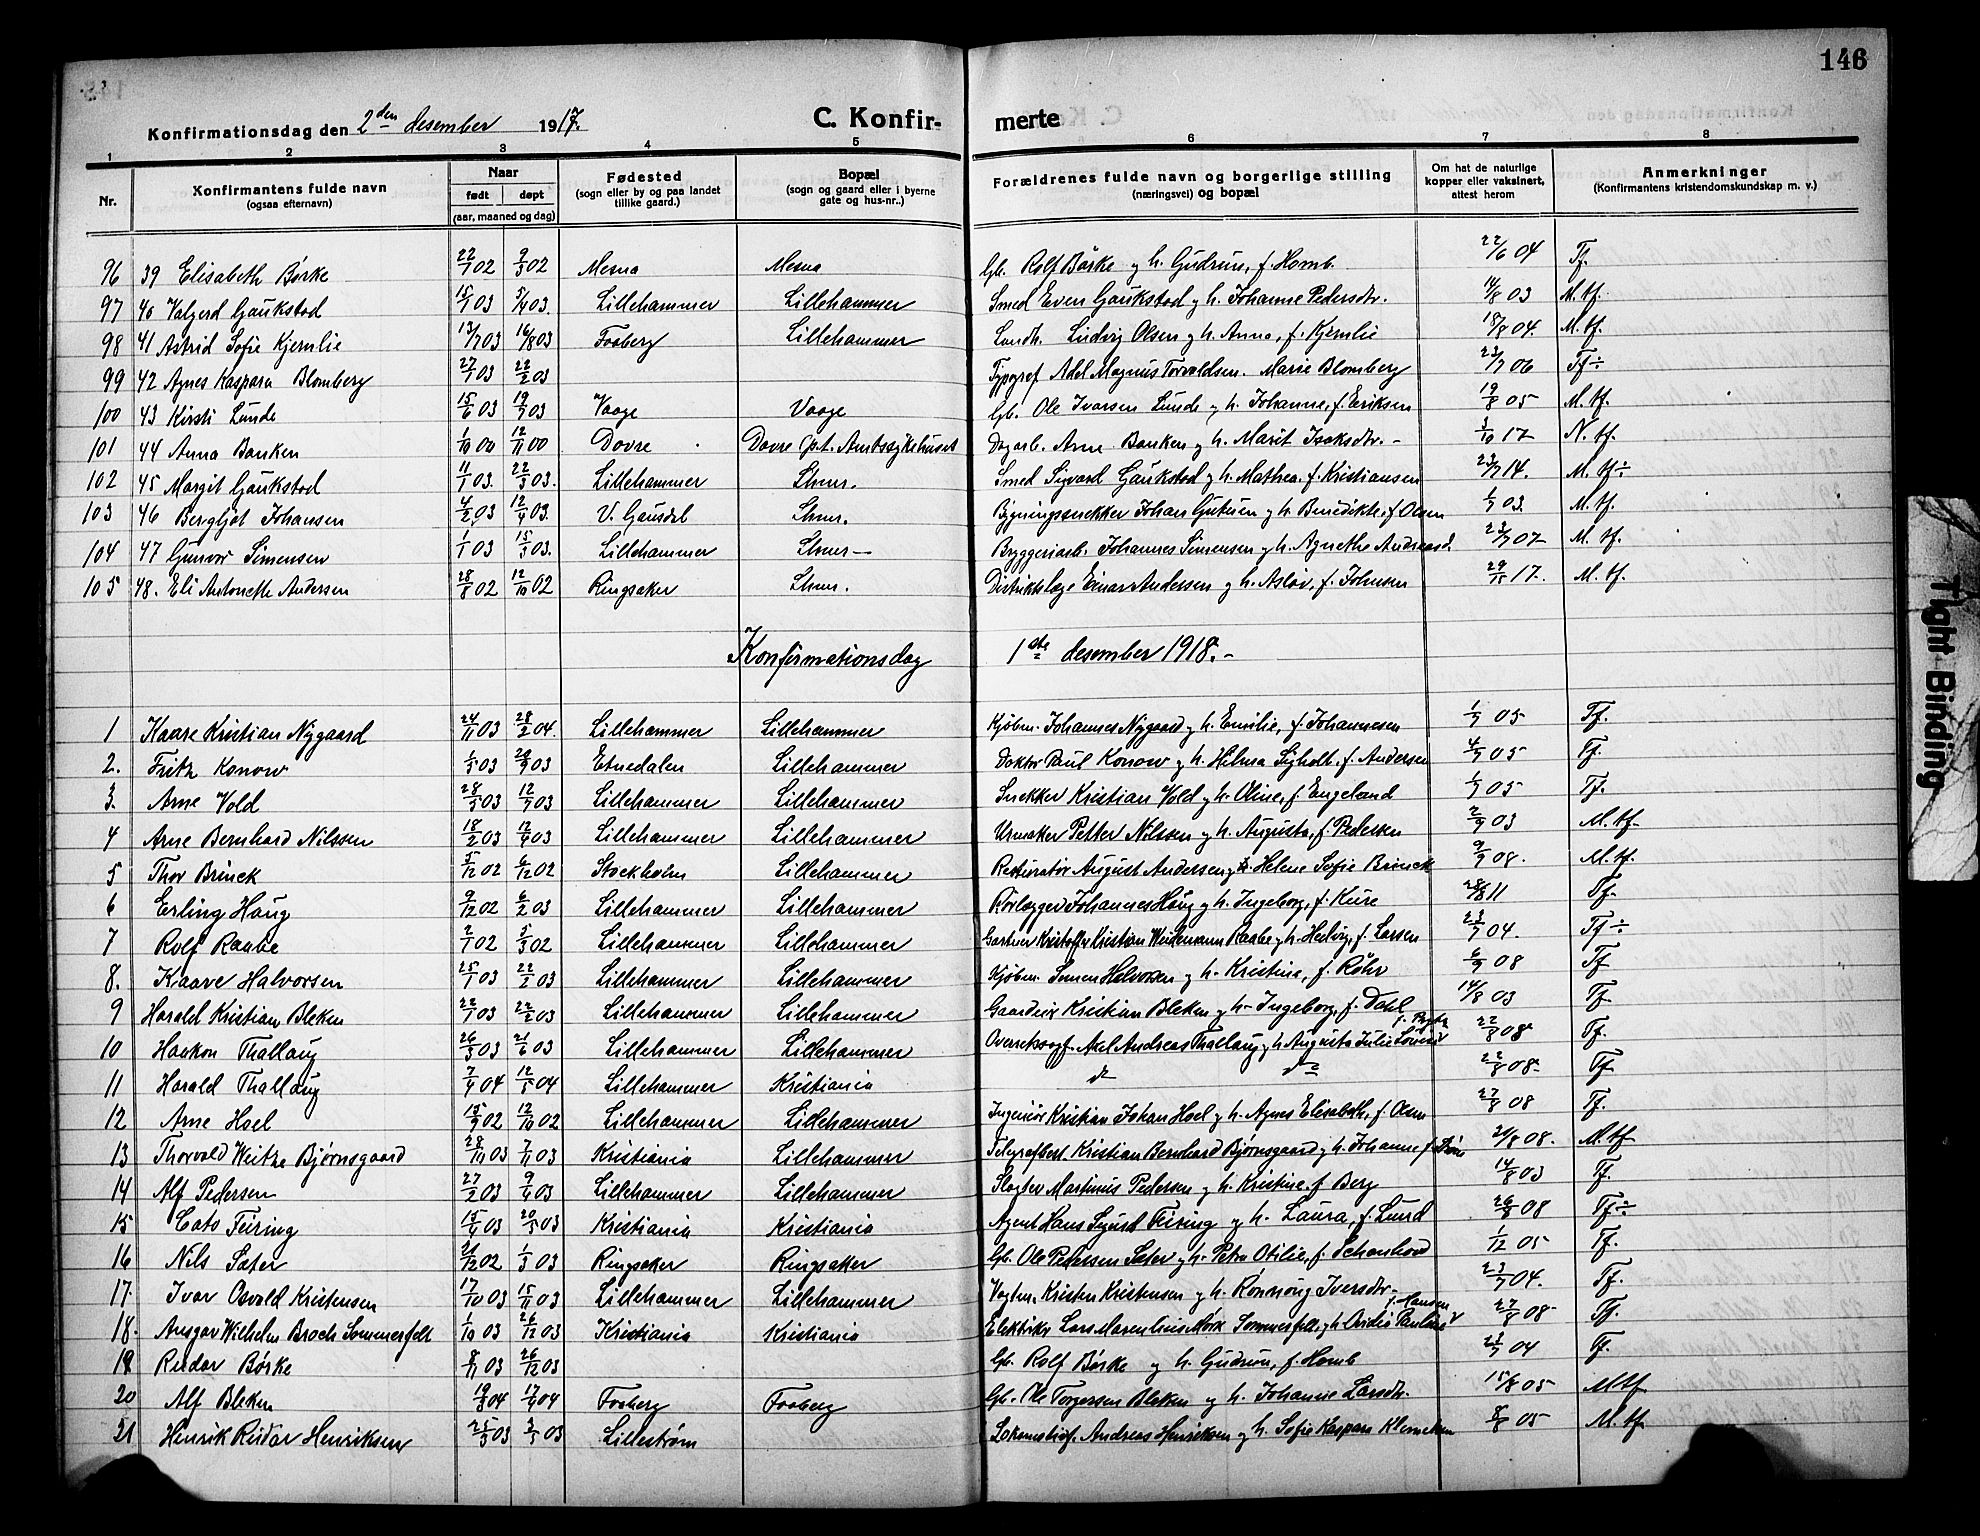 146
Konfirmationsdag den 2den desember 1917. C. Konfir- merte
1 2 3 4 5 6 7 8
Nr. Konfirmantens fulde navn (ogsaa efternavn) Naar født døpt (aar, maaned og dag) Fødested (sogn eller by og paa landet tillike gaard.) Bopæl (sogn og gaard eller i byerne gate og hus-nr..) Forældrenes fulde navn og borgerlige stilling (næringsvei) og bopæl Om hat de naturlige kopper eller vaksinert, attest herom Anmerkninger (Konfirmantens kristendomskundskap m. v.)
96 39 Elisabeth Børke 22/1 02 9/3 02 Mesna Mesna Gb. Rolf Børke og h. Gudrun, f. Homb. 22/6 04 Tf.
97 40 Valgerd Gaukstad 15/1 03 5/4 03. Lillehammer Lillehammer Smed Even Gaukstad og h. Johanne Pedersdtr. 14/8 03 M. tf.
98 41 Astrid Sofie Kjernlie 13/7 03 16/8 03 Faaberg Lillehammer Landh. Ludvig Olsen og h. Anna, f. Kjernlie 18/8 04. M. tf.
99 42 Agnes Kaspara Blomberg 27/1 03 22/2 03 Typograf Adel Magnus Torvaldsen. Marie Blomberg 23/7 06 Tf ÷
100 43 Kirsti Lunde 15/6 03 19/7 03 Vaage Vaage Gb. Ole Ivarsen Lunde og h. Johanne, f. Eriksen 19/8 05 M. tf.
101 44 Anna Banken 1/10 00 12/11 00 Dovre Dovre p.t. Amtssykehuset Dagarb. Arne Banken og h. Marit Isaksdtr. - 3/10 17 N. tf.
102 45 Margit Gaukstad 11/1 03. 22/3 03. Lillehammer Lhmr. Smed Sigvard Gaukstad og h. Mathea f. Kristiansen 23/7 14. M. tf ÷
103 46 Bergljot Johansen 4/2 03 12/4 03. V. Gausdal Lhmr. Bygningssnekker Johan Gutuen og h. Benedikte f. Olsen 1/7 03. M. tf.
104 47 Gunvor Simensen 1/1 03 15/3 03. Lillehammer Lhmr - Bryggeriarb. Johannes Simensen og h. Agnethe Andreasd. 23/7 07 M. tf.
105 48. Eli Antonette Andersen 28/8 02 12/10 02 Ringsaker Lhmr. Distriktslæge Einar Andersen og h. Aslø, f. Johnsen 29/11 17. M. tf.
Konfirmationsdag 1ste desember 1918. -
1 Kaare Kristian Nygaard 24/11 03 28/2 04. Lillehammer Lillehammer Kjøbm. Johannes Nygaard og h. Emilie, f. Johannesen 1/7 05 Tf.
2. Fritz Konow 1/5 03 20/9 03 Etnedalen Lillehammer Doktor Paul Konow og h. Helma f. Andersen 4/7 05 Tf.
3. Arne Vold 28/5 03 12/7 03 Lillehammer Lillehammer Snekker Kristian Vold og h. Oline, f. Engeland 1/7 05 Tf.
4 Arne Bernhard Nilssen 18/2 03 12/4 03 Lillehammer Lillehammer Urmaker Petter Nilssen og h. Augusta, f. Pedersen 2/9 03 M. tf.
5 Thor Brinck 5/12 02 6/12 02 Stockholm Lillehammer Restauratør August Anderssen og Helene Sofie Brinck 9/9 08. M. tf.
6 Erling Haug 9/12 02 6/2 03 Lillehammer Lillehammer Rørlægger Johannes Haug og h. Ingeborg, f. Kure 28/8 11 Tf.
7 Rolf Raabe 2/1 02 5/3 02 Lillehammer Lillehammer Gartner Kristoffer Kristian Weidemann Raabe og h. Hedvig, f. Larsen 23/7 04. Tf ÷
8. Kaare Halvorsen 25/1 03 22/2 03 Lillehammer Lillehammer Kjøbm. Simen Halvorsen og h. Kristine, f. Røhr 6/9 08 Tf
9 Harald Kristian Bleken 22/1 03 22/2 03 Lillehammer Lillehammer Gaardeier Kristian Bleken og h. Ingeborg, f. Dahl 14/8 03 Tf.
10 Haakon Thallaug 26/3 03 21/6 03 Lillehammer Lillehammer Overretssagf. Axel Andreas Thallaug og h. Augusta Julie Lovise 22/8 08 Tf.
11 Harald Thallaug 7/4 04 12/5 04 Lillehammer Kristiania do do 22/8 08. Tf.
12 Arne Hoel 15/9 02 12/10 02 Lillehammer Lillehammer Ingeniør Kristian Johan Hoel og h. Agnes Elisabeth, f. Olsen 27/8 08 Tf.
13 Thorvald Weitze Bjørnsgaard 28/11 03 7/11 03 Kristiania Lillehammer Telegrafbest. Kristian Bernhard Bjørnsgaard og h. Johanne 21/8 08. M. tf
14 Alf Pedersen 27/2 03 9/4 03 Lillehammer Lillehammer Slagter Martinus Pedersen og h. Kristine f. Berg 14/8 03 Tf.
15 Cato Feiring 15/4 03 20/5 03 Kristiania Kristiania Agent Hans Sigurd Feiring og h. Laura, f. Lund 26/8 08 Tf ÷
16 Nils Sater 21/12 02 1/3 03 Ringsaker Ringsaker Gb. Ole Pedersen Sater og h. Petra Otilie, f. Schanhovd 1/12 05 Tf.
17. Ivar Osvald Kristensen 17/10 03 15/11 03 Lillehammer Lillehammer Vogtm. Kristen Kristensen og h. Rønnaug Iversdtr. 23/7 04. Tf.
18. Ansgar Wilhelm Broch Sommerfelt 1/10 03 26/12 03 Kristiania Kristiania Elektriker Lars Marenlius Mørk Sommerfelt og h. f. Hansen 27/8 08 Tf.
19 Reidar Børke 8/11 03 26/12 03 Gb. Rolf Børke og h. Gudrun, f. Homb 23/7 04 Tf.
20 Alf Bleken 19/3 04 17/4 04 Faaberg Faaberg Gb. Ole Torgersen Bleken og h. Johanne Larsdtr. 15/8 05 M tf
21 Henrik Reidar Henriksen 25/3 03 3/5 03 Lillestrøm Lokomotivf. Andreas Henriksen og h. Sofie Kaspara Klemetsen 8/8 05 M. tf
Tight Binding